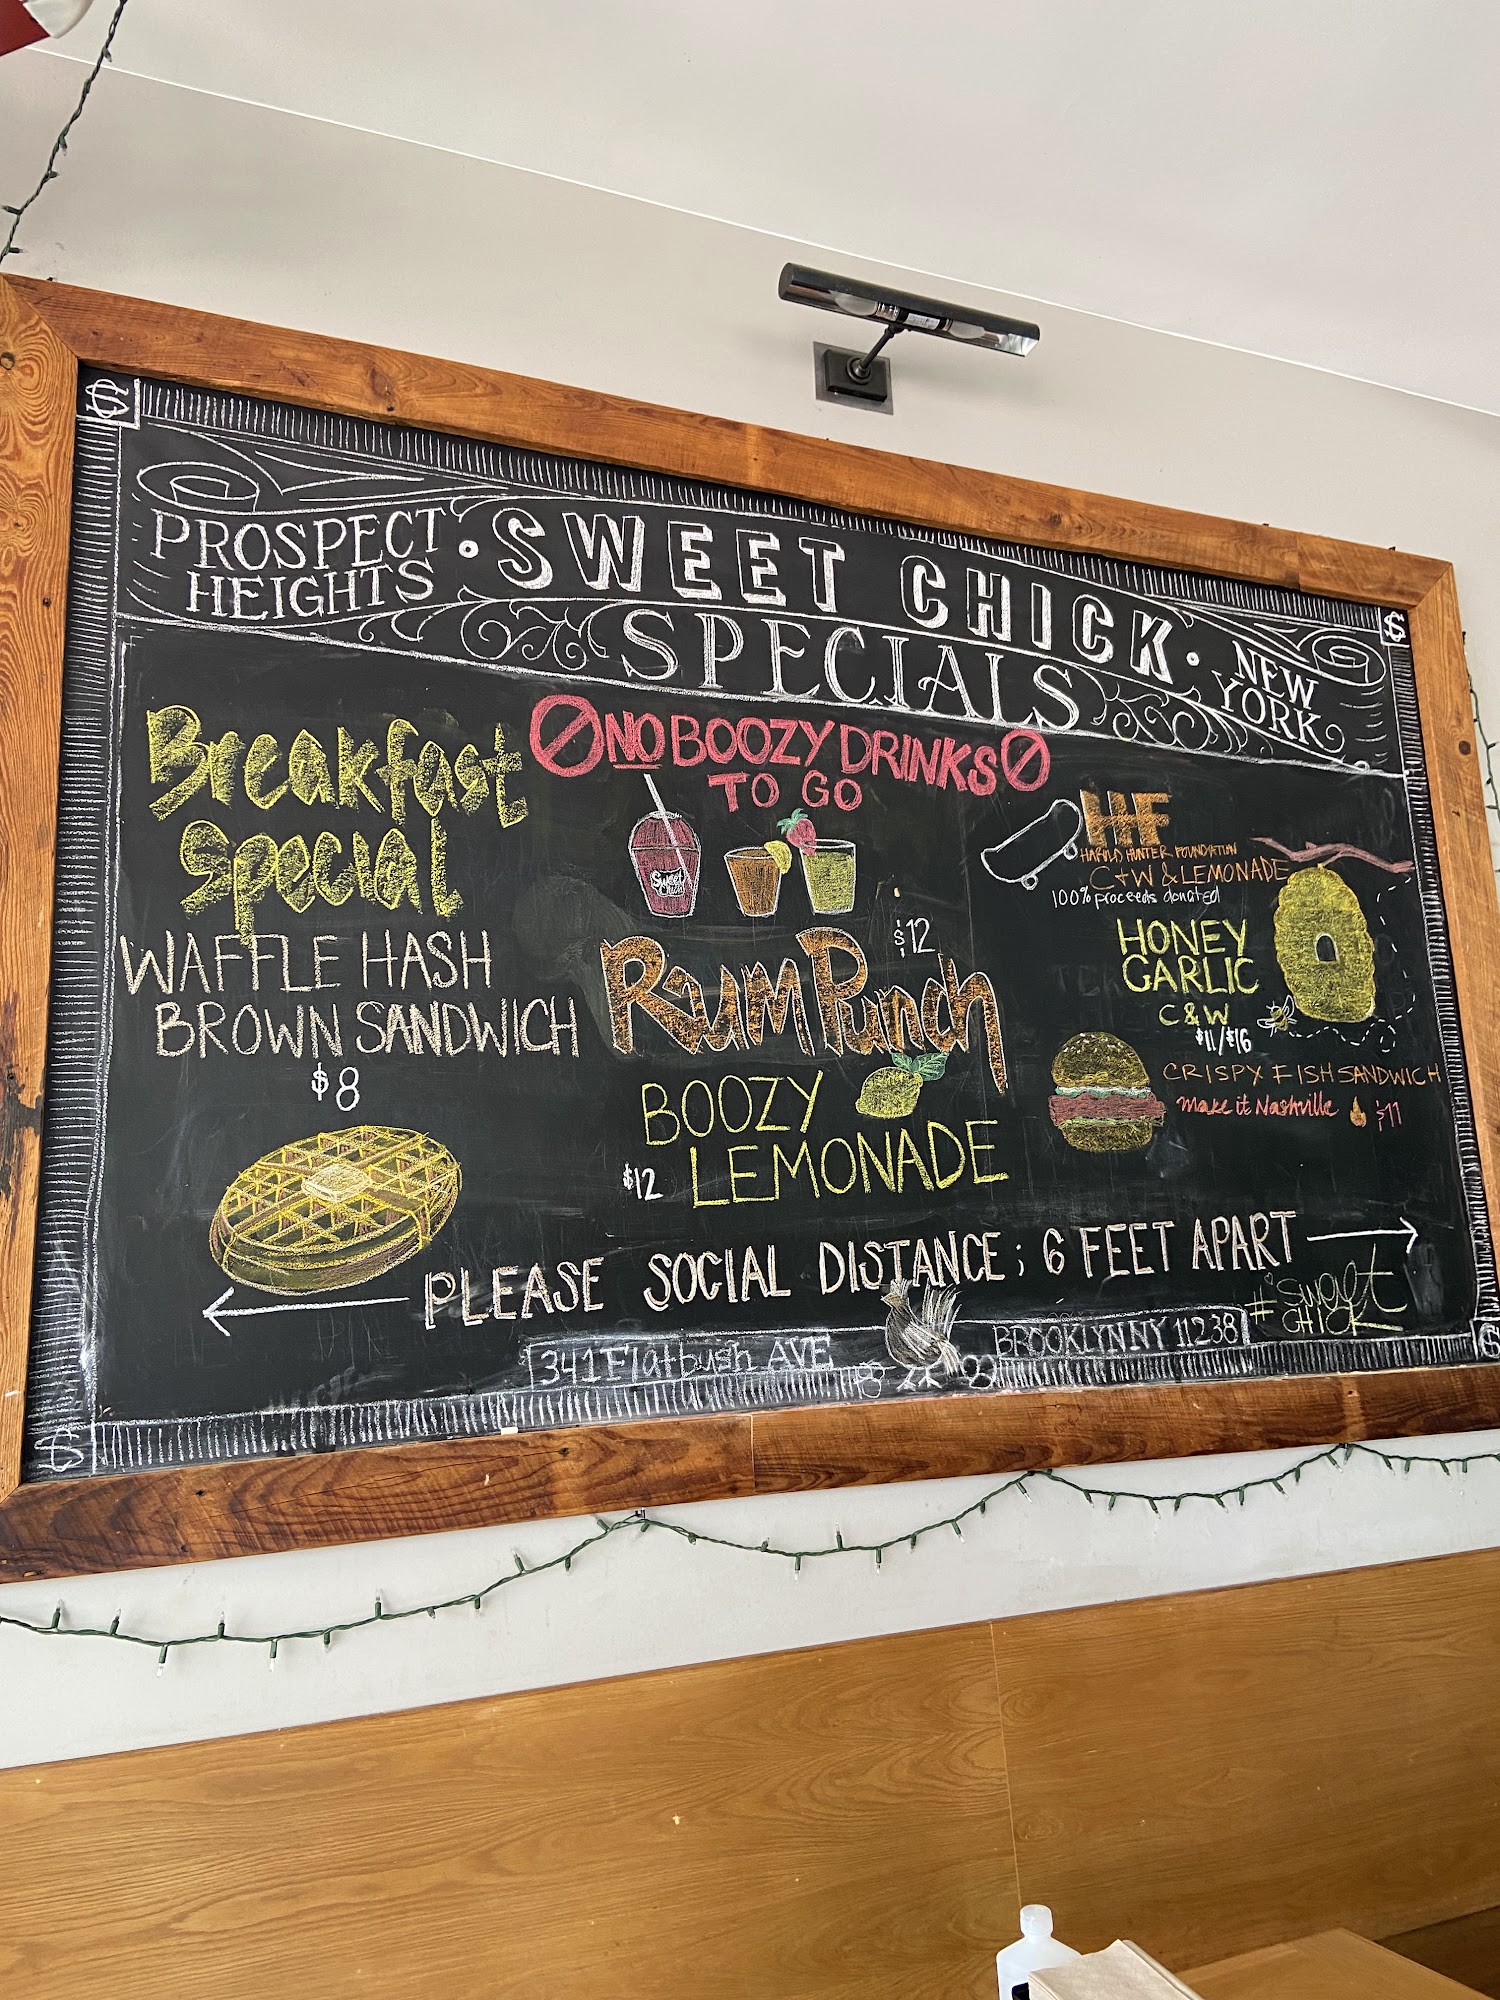 PROSPECT
HEIGHTS
SWEET CHICK
SPECIALS
NEW
YORK
Breakfast
Special
WAFFLE HASH
BROWN SANDWICH
$8
NO BOOZY DRINKS
TO GO
Sweet
Chick
$12
Rum Punch
BOOZY
LEMONADE
$12
HF
HAROLD HUNTER FOUNDATION
C+W & LEMONADE
100% proceeds donated
HONEY
GARLIC
C&W
$11/$16
CRISPY FISH SANDWICH
make it Nashville $11
PLEASE SOCIAL DISTANCE; 6 FEET APART
#SWEET
CHICK
341 Flatbush AVE
BROOKLYN NY 11238